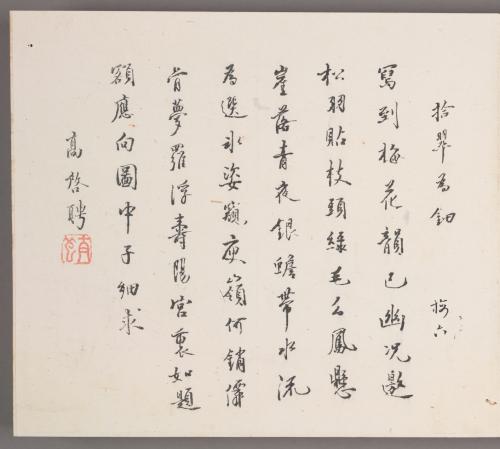 拾翠為鈿
寫到梅花韻已幽况邀
松羽貼枝頭綠毛么鳳懸
崖落青夜銀蟾帶水流
為選冰姿庾嶺何銷
夢羅浮壽陽宮裏如題
額應向圖中子細求
高啓聘